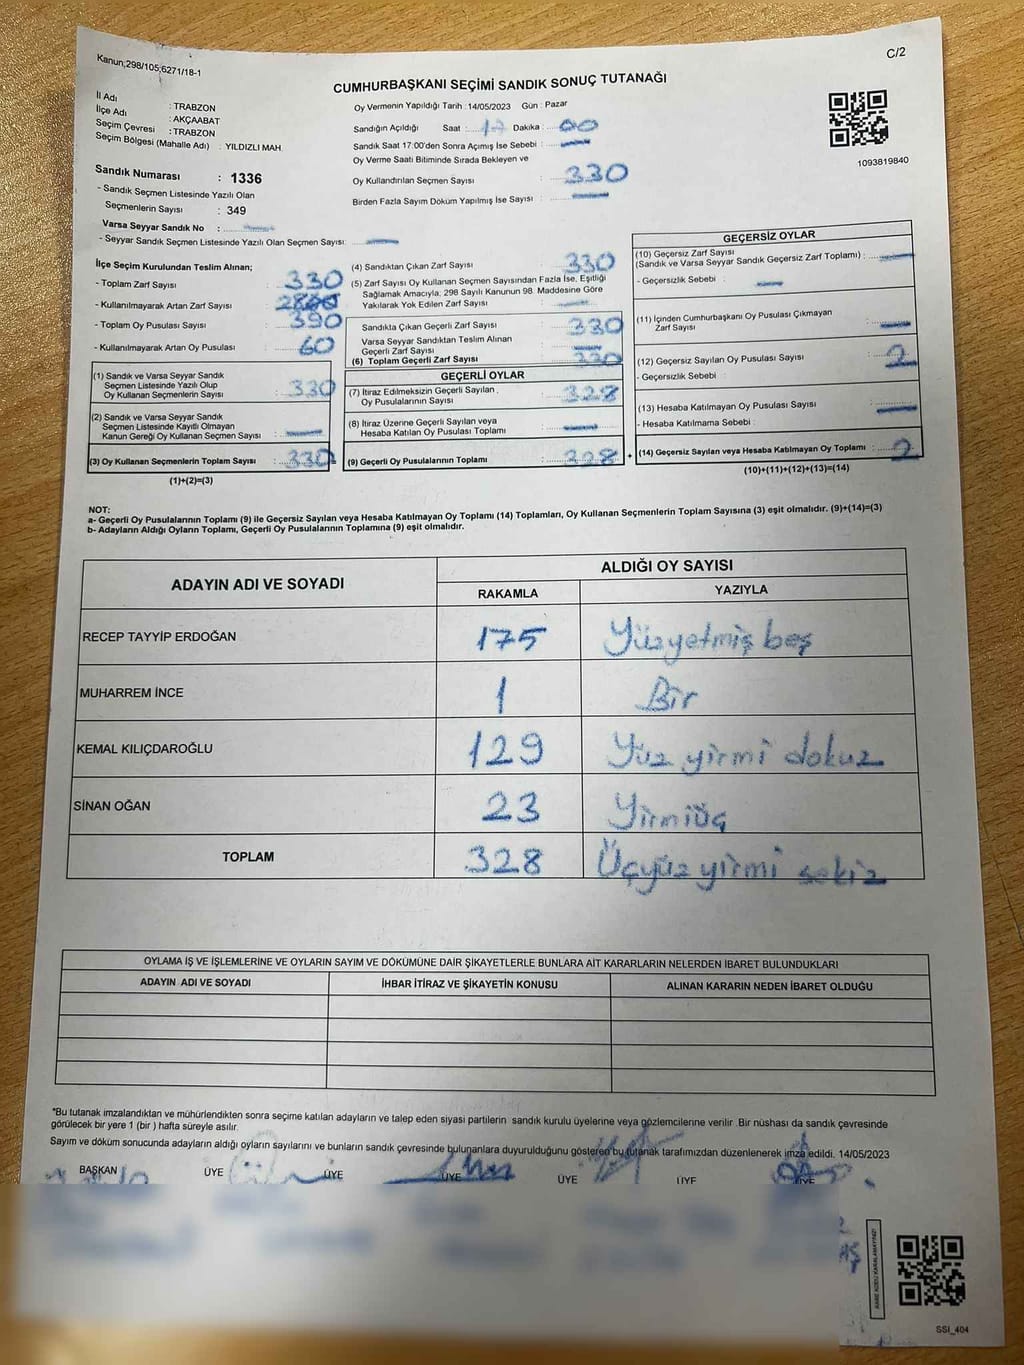 Kanun;298/105;6271/18-1
C/2
CUMHURBAŞKANI SEÇİMİ SANDIK SONUÇ TUTANAĞI
İl Adı : TRABZON
İlçe Adı : AKÇAABAT
Seçim Çevresi : TRABZON
Seçim Bölgesi (Mahalle Adı) : YILDIZLI MAH.
Sandık Numarası : 1336
- Sandık Seçmen Listesinde Yazılı Olan
Seçmenlerin Sayısı : 349
Varsa Seyyar Sandık No :
- Seyyar Sandık Seçmen Listesinde Yazılı Olan Seçmen Sayısı:
Oy Vermenin Yapıldığı Tarih : 14/05/2023 Gün : Pazar
Sandığın Açıldığı Saat : 17 Dakika : 00
Sandık Saat 17:00'den Sonra Açılmış İse Sebebi :
Oy Verme Saati Bitiminde Sırada Bekleyen ve
Oy Kullandırılan Seçmen Sayısı : 330
Birden Fazla Sayım Döküm Yapılmış İse Sayısı :
1093819840
İlçe Seçim Kurulundan Teslim Alınan;
- Toplam Zarf Sayısı : 330
- Kullanılmayarak Artan Zarf Sayısı :
- Toplam Oy Pusulası Sayısı : 390
- Kullanılmayarak Artan Oy Pusulası : 60
(1) Sandık ve Varsa Seyyar Sandık
Seçmen Listesinde Yazılı Olup
Oy Kullanan Seçmenlerin Sayısı : 330
(2) Sandık ve Varsa Seyyar Sandık
Seçmen Listesinde Kayıtlı Olmayan
Kanun Gereği Oy Kullanan Seçmen Sayısı :
(3) Oy Kullanan Seçmenlerin Toplam Sayısı : 330
(1)+(2)=(3)
(4) Sandıktan Çıkan Zarf Sayısı : 330
(5) Zarf Sayısı Oy Kullanan Seçmen Sayısından Fazla İse, Eşitliği
Sağlamak Amacıyla, 298 Sayılı Kanunun 98. Maddesine Göre
Yakılarak Yok Edilen Zarf Sayısı :
Sandıkta Çıkan Geçerli Zarf Sayısı : 330
Varsa Seyyar Sandıktan Teslim Alınan
Geçerli Zarf Sayısı :
(6) Toplam Geçerli Zarf Sayısı : 330
GEÇERLİ OYLAR
(7) İtiraz Edilmeksizin Geçerli Sayılan
Oy Pusulalarının Sayısı : 328
(8) İtiraz Üzerine Geçerli Sayılan veya
Hesaba Katılan Oy Pusulası Toplamı :
(9) Geçerli Oy Pusulalarının Toplamı : 328
GEÇERSİZ OYLAR
(10) Geçersiz Zarf Sayısı
(Sandık ve Varsa Seyyar Sandık Geçersiz Zarf Toplamı) :
- Geçersizlik Sebebi :
(11) İçinden Cumhurbaşkanı Oy Pusulası Çıkmayan
Zarf Sayısı :
(12) Geçersiz Sayılan Oy Pusulası Sayısı : 2
- Geçersizlik Sebebi :
(13) Hesaba Katılmayan Oy Pusulası Sayısı :
- Hesaba Katılmama Sebebi :
+ (14) Geçersiz Sayılan veya Hesaba Katılmayan Oy Toplamı : 2
(10)+(11)+(12)+(13)=(14)
NOT:
a- Geçerli Oy Pusulalarının Toplamı (9) ile Geçersiz Sayılan veya Hesaba Katılmayan Oy Toplamı (14) Toplamları, Oy Kullanan Seçmenlerin Toplam Sayısına (3) eşit olmalıdır. (9)+(14)=(3)
b- Adayların Aldığı Oyların Toplamı, Geçerli Oy Pusulalarının Toplamına (9) eşit olmalıdır.
ADAYIN ADI VE SOYADI ALDIĞI OY SAYISI
RAKAMLA YAZIYLA
RECEP TAYYİP ERDOĞAN 175 Yüzyetmiş beş
MUHARREM İNCE 1 Bir
KEMAL KILIÇDAROĞLU 129 Yüz yirmi dokuz
SİNAN OĞAN 23 Yirmiüç
TOPLAM 328 Üçyüz yirmi sekiz
OYLAMA İŞ VE İŞLEMLERİNE VE OYLARIN SAYIM VE DÖKÜMÜNE DAİR ŞİKAYETLERLE BUNLARA AİT KARARLARIN NELERDEN İBARET BULUNDUKLARI
ADAYIN ADI VE SOYADI İHBAR İTİRAZ VE ŞİKAYETİN KONUSU ALINAN KARARIN NEDEN İBARET OLDUĞU
*Bu tutanak imzalandıktan ve mühürlendikten sonra seçime katılan adayların ve talep eden siyasi partilerin sandık kurulu üyelerine veya gözlemcilerine verilir .Bir nüshası da sandık çevresinde
görülecek bir yere 1 (bir ) hafta süreyle asılır.
Sayım ve döküm sonucunda adayların aldığı oyların sayılarını ve bunların sandık çevresinde bulunanlara duyurulduğunu gösteren bu tutanak tarafımızdan düzenlenerek imza edildi. 14/05/2023
BAŞKAN ÜYE ÜYE ÜYE ÜYE ÜYE ÜYE
SSI_404